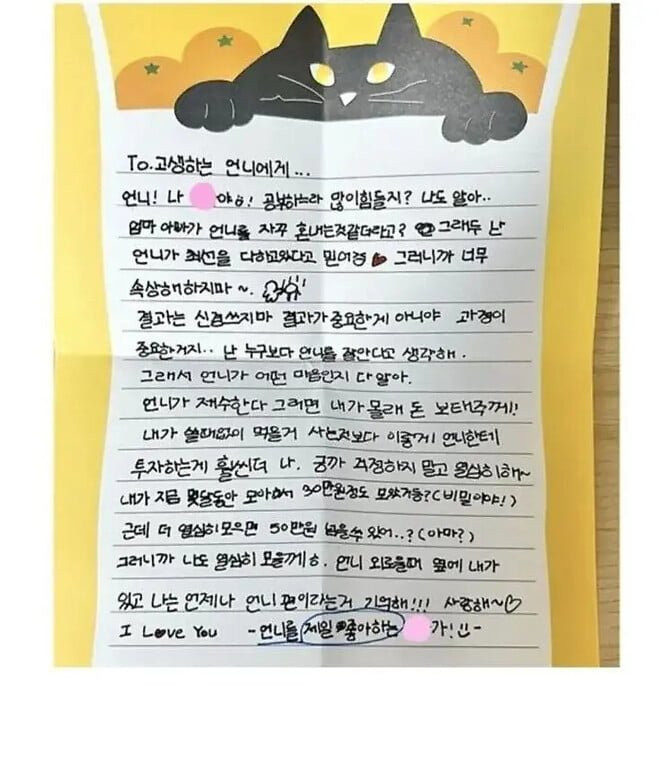 To. 고생하는 언니에게...
언니! 나 야ㅎ! 공부하느라 많이힘들지? 나도 알아..
엄마 아빠가 언니를 자꾸 혼내는것같더라고? 그래두 난
언니가 최선을 다하고있다고 믿어경 그러니까 너무
속상해하지마~.
결과는 신경쓰지마 결과가 중요한게 아니야 과정이
중요한거지.. 난 누구보다 언니를 잘안다고 생각해.
그래서 언니가 어떤 마음인지 다 알아.
언니가 재수한다 그러면 내가 몰래 돈 보태줄게!
내가 쓸때없이 먹을거 사는것보다 이렇게 언니한테
투자하는게 훨씬더 나. 긍까 걱정하지 말고 열심히해~
내가 지금 몇달동안 모아서 30만원정도 모았거등?(비밀이야!)
근데 더 열심히모으면 50만원 넘을수 있어..?(아마?)
그러니까 나도 열심히 모을께ㅎ. 언니 외로울때 옆에 내가
있고 나는 언제나 언니 편이라는거 기억해!!! 사랑해~♡
I Love You -언니를 제일 좋아하는 가!!-